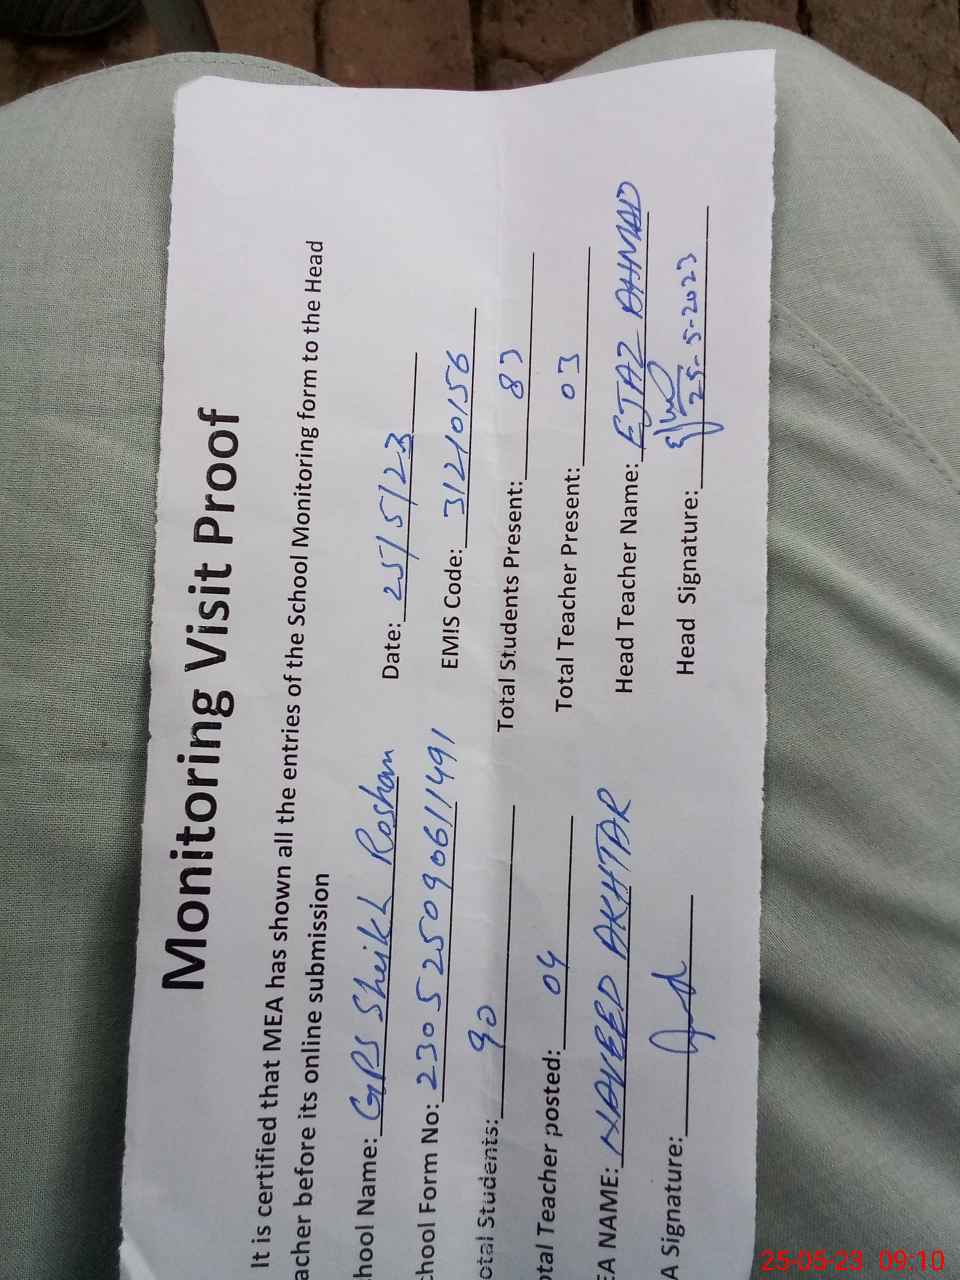 Monitoring Visit Proof
It is certified that MEA has shown all the entries of the School Monitoring form to the Head
acher before its online submission
hool Name: GPS Sheikh Roshan Date: 25/5/23
chool Form No: 230525090611491 EMIS Code: 31210156
otal Students: 90 Total Students Present: 83
otal Teacher posted: 04 Total Teacher Present: 03
EA NAME: NAVEED AKHTAR Head Teacher Name: EJAZ AHMAD
A Signature: Head Signature: 25-5-2023
25-05-23 09:10